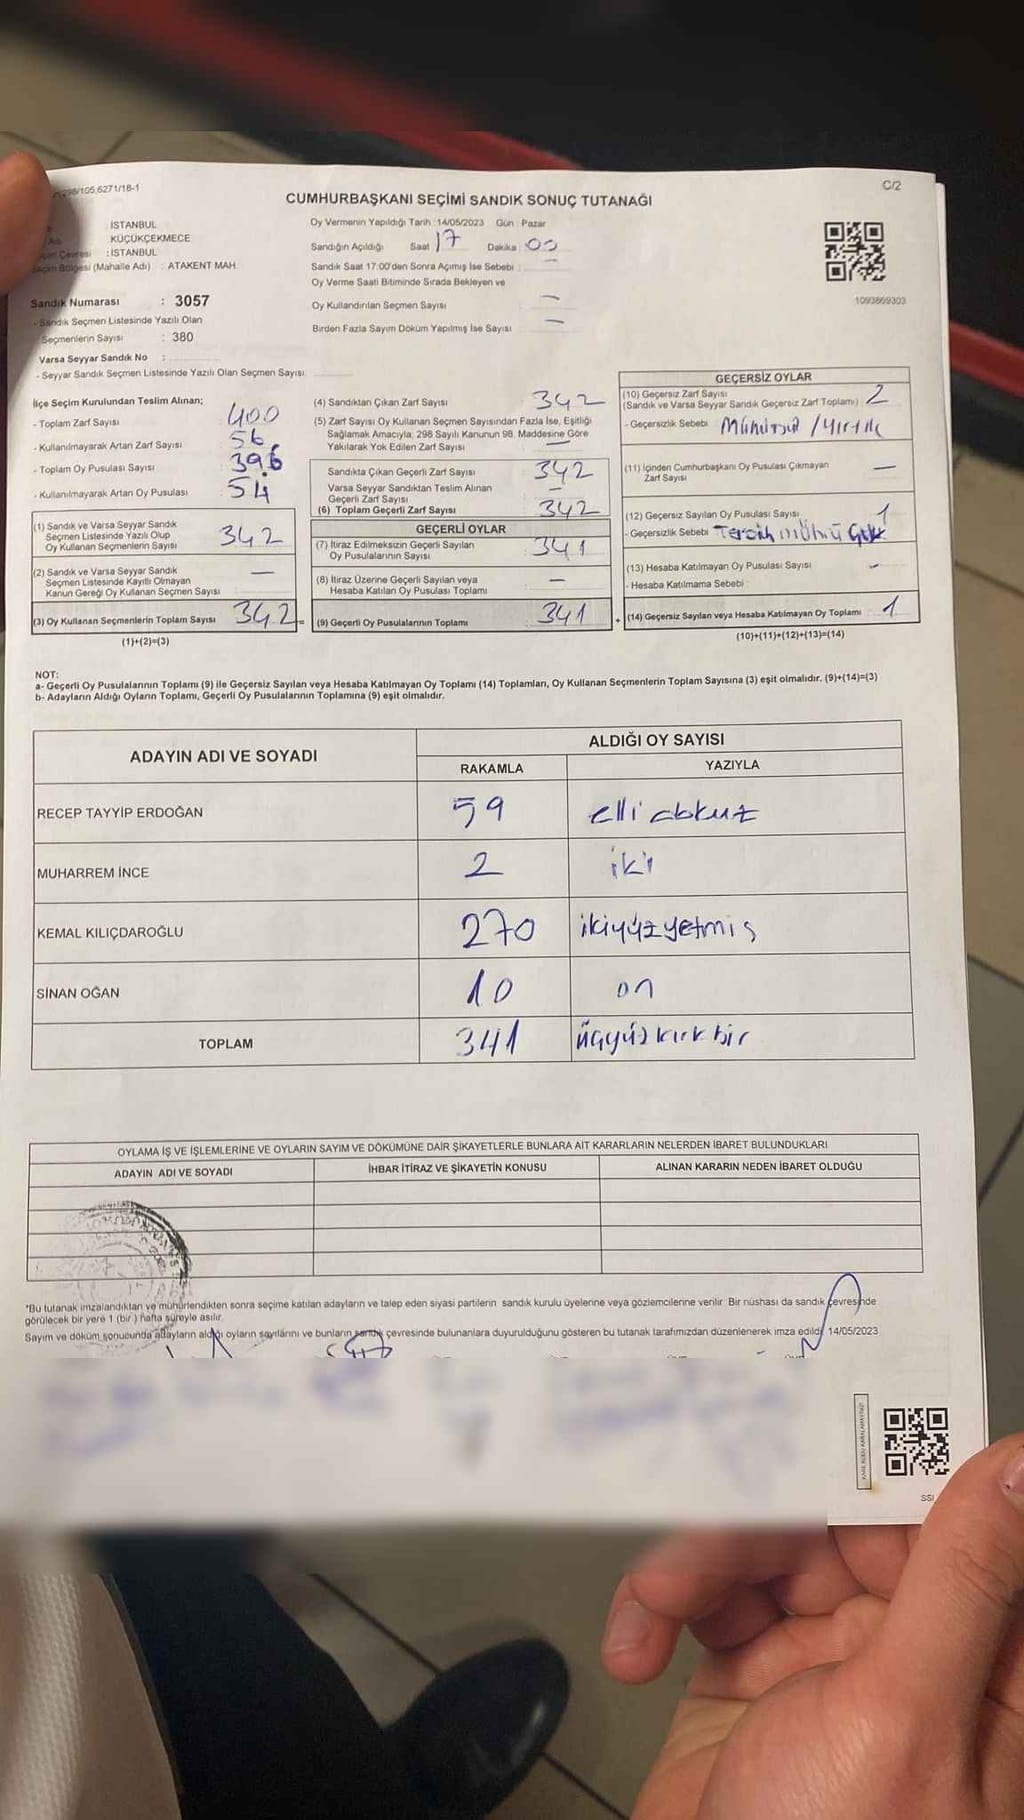 298/105,6271/18-1
C/2
CUMHURBAŞKANI SEÇİMİ SANDIK SONUÇ TUTANAĞI
: İSTANBUL
: KÜÇÜKÇEKMECE
: İSTANBUL
(Mahalle Adı) : ATAKENT MAH.
Sandık Numarası : 3057
- Sandık Seçmen Listesinde Yazılı Olan
Seçmenlerin Sayısı : 380
Varsa Seyyar Sandık No :
- Seyyar Sandık Seçmen Listesinde Yazılı Olan Seçmen Sayısı
Oy Vermenin Yapıldığı Tarih : 14/05/2023 Gün : Pazar
Sandığın Açıldığı Saat 17 Dakika : 00
Sandık Saat 17:00'den Sonra Açımış İse Sebebi : —
Oy Verme Saati Bitiminde Sırada Bekleyen ve
Oy Kullandırılan Seçmen Sayısı —
Birden Fazla Sayım Döküm Yapılmış İse Sayısı —
1093869303
İlçe Seçim Kurulundan Teslim Alınan;
- Toplam Zarf Sayısı : 400
- Kullanılmayarak Artan Zarf Sayısı : 56
- Toplam Oy Pusulası Sayısı : 396
- Kullanılmayarak Artan Oy Pusulası : 54
(1) Sandık ve Varsa Seyyar Sandık
Seçmen Listesinde Yazılı Olup
Oy Kullanan Seçmenlerin Sayısı 342
(2) Sandık ve Varsa Seyyar Sandık
Seçmen Listesinde Kayıtlı Olmayan
Kanun Gereği Oy Kullanan Seçmen Sayısı —
(3) Oy Kullanan Seçmenlerin Toplam Sayısı 342
(1)+(2)=(3)
(4) Sandıktan Çıkan Zarf Sayısı 342
(5) Zarf Sayısı Oy Kullanan Seçmen Sayısından Fazla İse, Eşitliği
Sağlamak Amacıyla, 298 Sayılı Kanunun 98. Maddesine Göre
Yakılarak Yok Edilen Zarf Sayısı —
Sandıkta Çıkan Geçerli Zarf Sayısı 342
Varsa Seyyar Sandıktan Teslim Alınan
Geçerli Zarf Sayısı —
(6) Toplam Geçerli Zarf Sayısı 342
GEÇERLİ OYLAR
(7) İtiraz Edilmeksizin Geçerli Sayılan
Oy Pusulalarının Sayısı 341
(8) İtiraz Üzerine Geçerli Sayılan veya
Hesaba Katılan Oy Pusulası Toplamı —
= (9) Geçerli Oy Pusulalarının Toplamı 341
GEÇERSİZ OYLAR
(10) Geçersiz Zarf Sayısı
(Sandık ve Varsa Seyyar Sandık Geçersiz Zarf Toplamı) 2
- Geçersizlik Sebebi Mühürsüz / Yırtık
(11) İçinden Cumhurbaşkanı Oy Pusulası Çıkmayan
Zarf Sayısı —
(12) Geçersiz Sayılan Oy Pusulası Sayısı 1
- Geçersizlik Sebebi Tercih mührü
(13) Hesaba Katılmayan Oy Pusulası Sayısı -
- Hesaba Katılmama Sebebi :
+ (14) Geçersiz Sayılan veya Hesaba Katılmayan Oy Toplamı 1
(10)+(11)+(12)+(13)=(14)
NOT:
a- Geçerli Oy Pusulalarının Toplamı (9) ile Geçersiz Sayılan veya Hesaba Katılmayan Oy Toplamı (14) Toplamları, Oy Kullanan Seçmenlerin Toplam Sayısına (3) eşit olmalıdır. (9)+(14)=(3)
b- Adayların Aldığı Oyların Toplamı, Geçerli Oy Pusulalarının Toplamına (9) eşit olmalıdır.
ADAYIN ADI VE SOYADI
ALDIĞI OY SAYISI
RAKAMLA YAZIYLA
RECEP TAYYİP ERDOĞAN 59 elli dokuz
MUHARREM İNCE 2 iki
KEMAL KILIÇDAROĞLU 270 ikiyüzyetmiş
SİNAN OĞAN 10 on
TOPLAM 341 üçyüzkırkbir
OYLAMA İŞ VE İŞLEMLERİNE VE OYLARIN SAYIM VE DÖKÜMÜNE DAİR ŞİKAYETLERLE BUNLARA AİT KARARLARIN NELERDEN İBARET BULUNDUKLARI
ADAYIN ADI VE SOYADI İHBAR İTİRAZ VE ŞİKAYETİN KONUSU ALINAN KARARIN NEDEN İBARET OLDUĞU
*Bu tutanak imzalandıktan ve mühürlendikten sonra seçime katılan adayların ve talep eden siyasi partilerin sandık kurulu üyelerine veya gözlemcilerine verilir. Bir nüshası da sandık çevresinde
görülecek bir yere 1 (bir) hafta süreyle asılır.
Sayım ve döküm sonucunda adayların aldığı oyların sayılarını ve bunların sandık çevresinde bulunanlara duyurulduğunu gösteren bu tutanak tarafımızdan düzenlenerek imza edildi. 14/05/2023
SSI